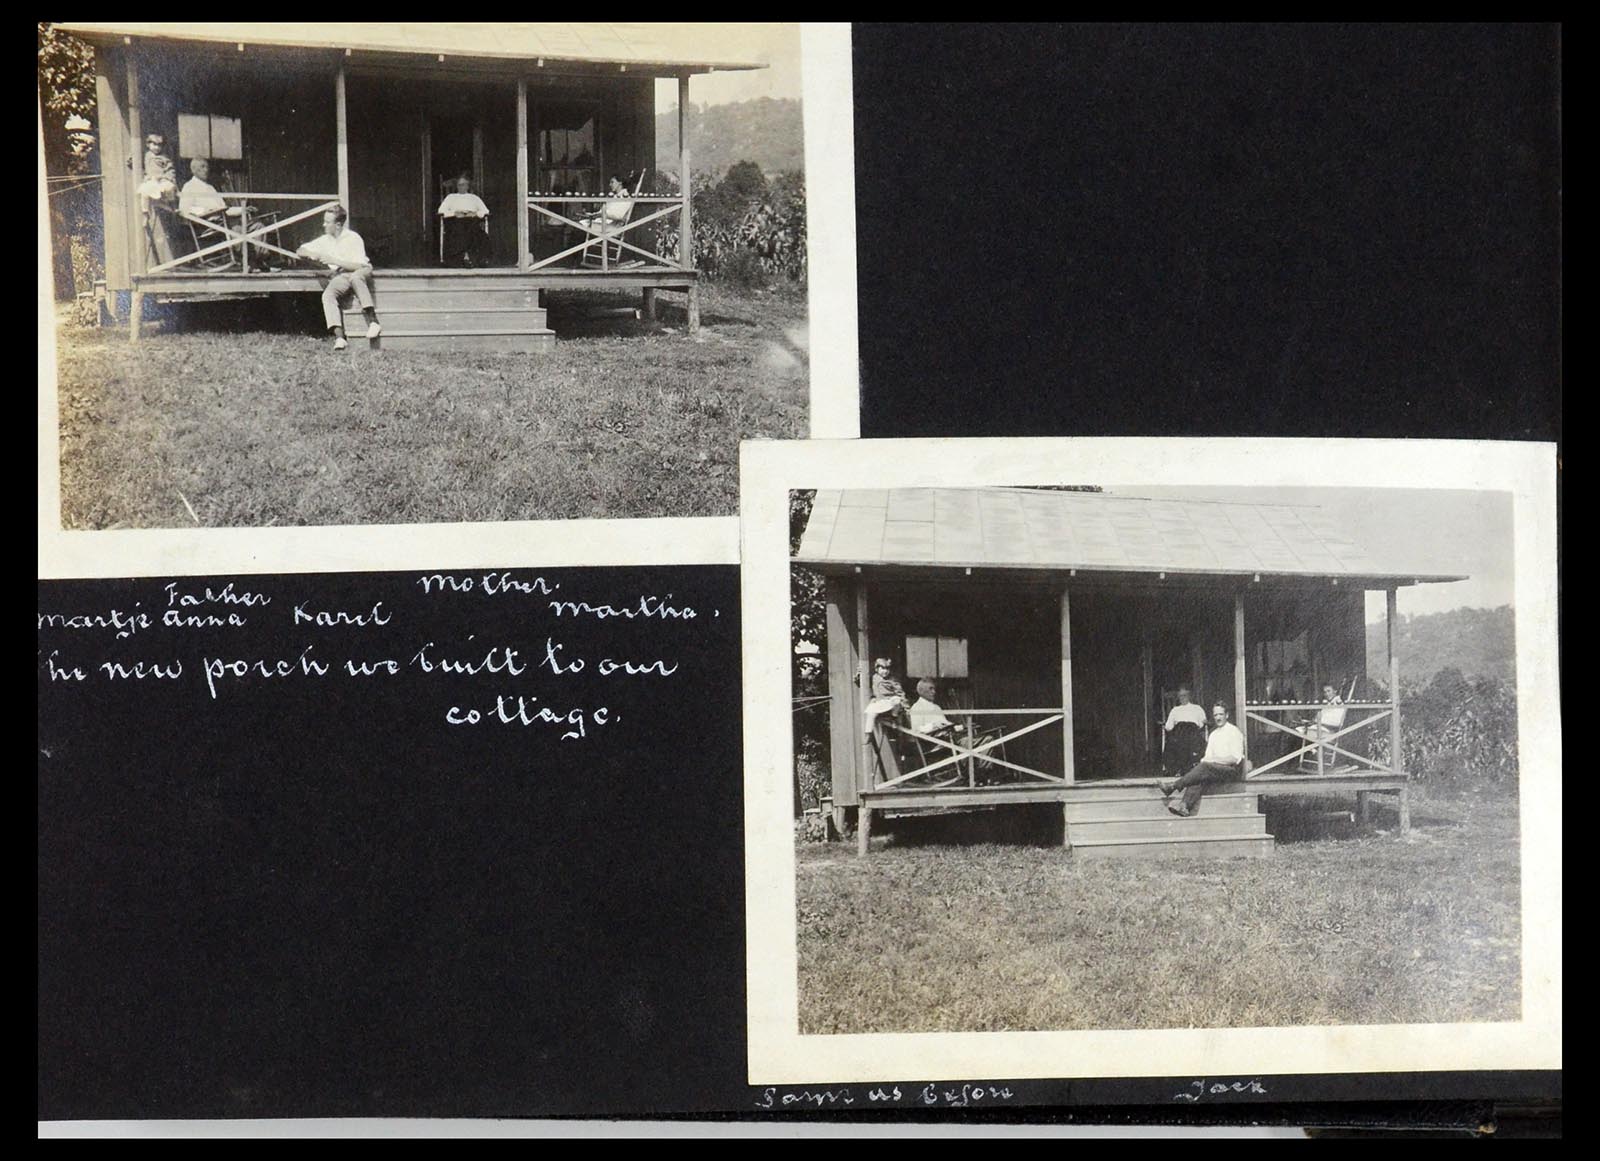 Father Mother.
Martje Anna Karel Martha.
he new porch we built to our
cottage.
Same as before Jack